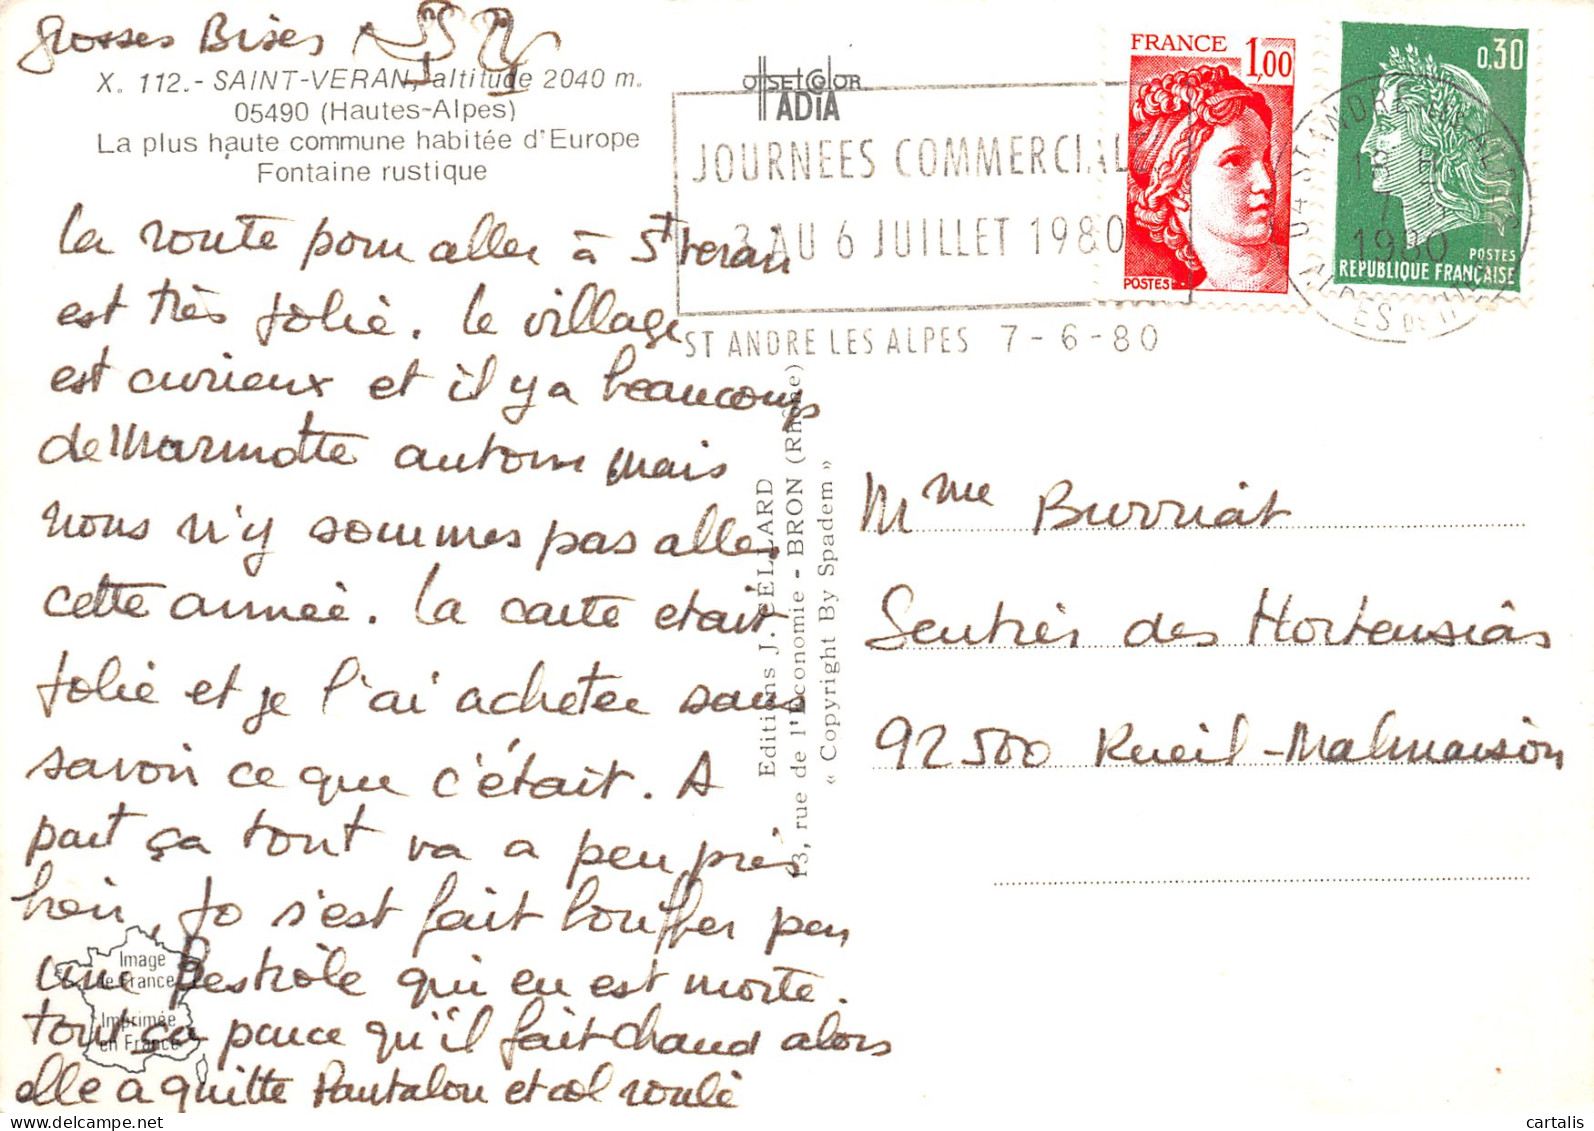 Grosses Bises
X. 112.- SAINT-VERAN, altitude 2040 m.
05490 (Hautes-Alpes)
La plus haute commune habitée d'Europe
Fontaine rustique
La route pour aller à St veran
est très jolie. Le village
est curieux et il y a beaucoup
de Marmotte autour mais
nous n'y sommes pas aller
cette année. La carte etait
jolie et je l'ai acheter sans
savoir ce que c'était. A
part ça tout va a peu près
bien, Jo s'est fait bouffer par
une Bestiole qui en est morte.
tout ça parce qu'il fait chaud alors
elle a quitte Pantalon et col roulé
OffSET COLOR
ADIA
JOURNEES COMMERCIALES
3 AU 6 JUILLET 1980
ST ANDRE LES ALPES 7-6-80
FRANCE 1,00
POSTES
0,30
POSTES
REPUBLIQUE FRANÇAISE
04 ST ANDRE LES ALPES
18 H
7
1980
ALPES DE HTE
Editions J. CELLARD
13, rue de l'Economie - BRON (Rhône)
« Copyright By Spadem »
Mme Burriat
Sentier des Hortensias
92500 Rueil-Malmaison
Image
de France
Imprimée
en France
cartalis